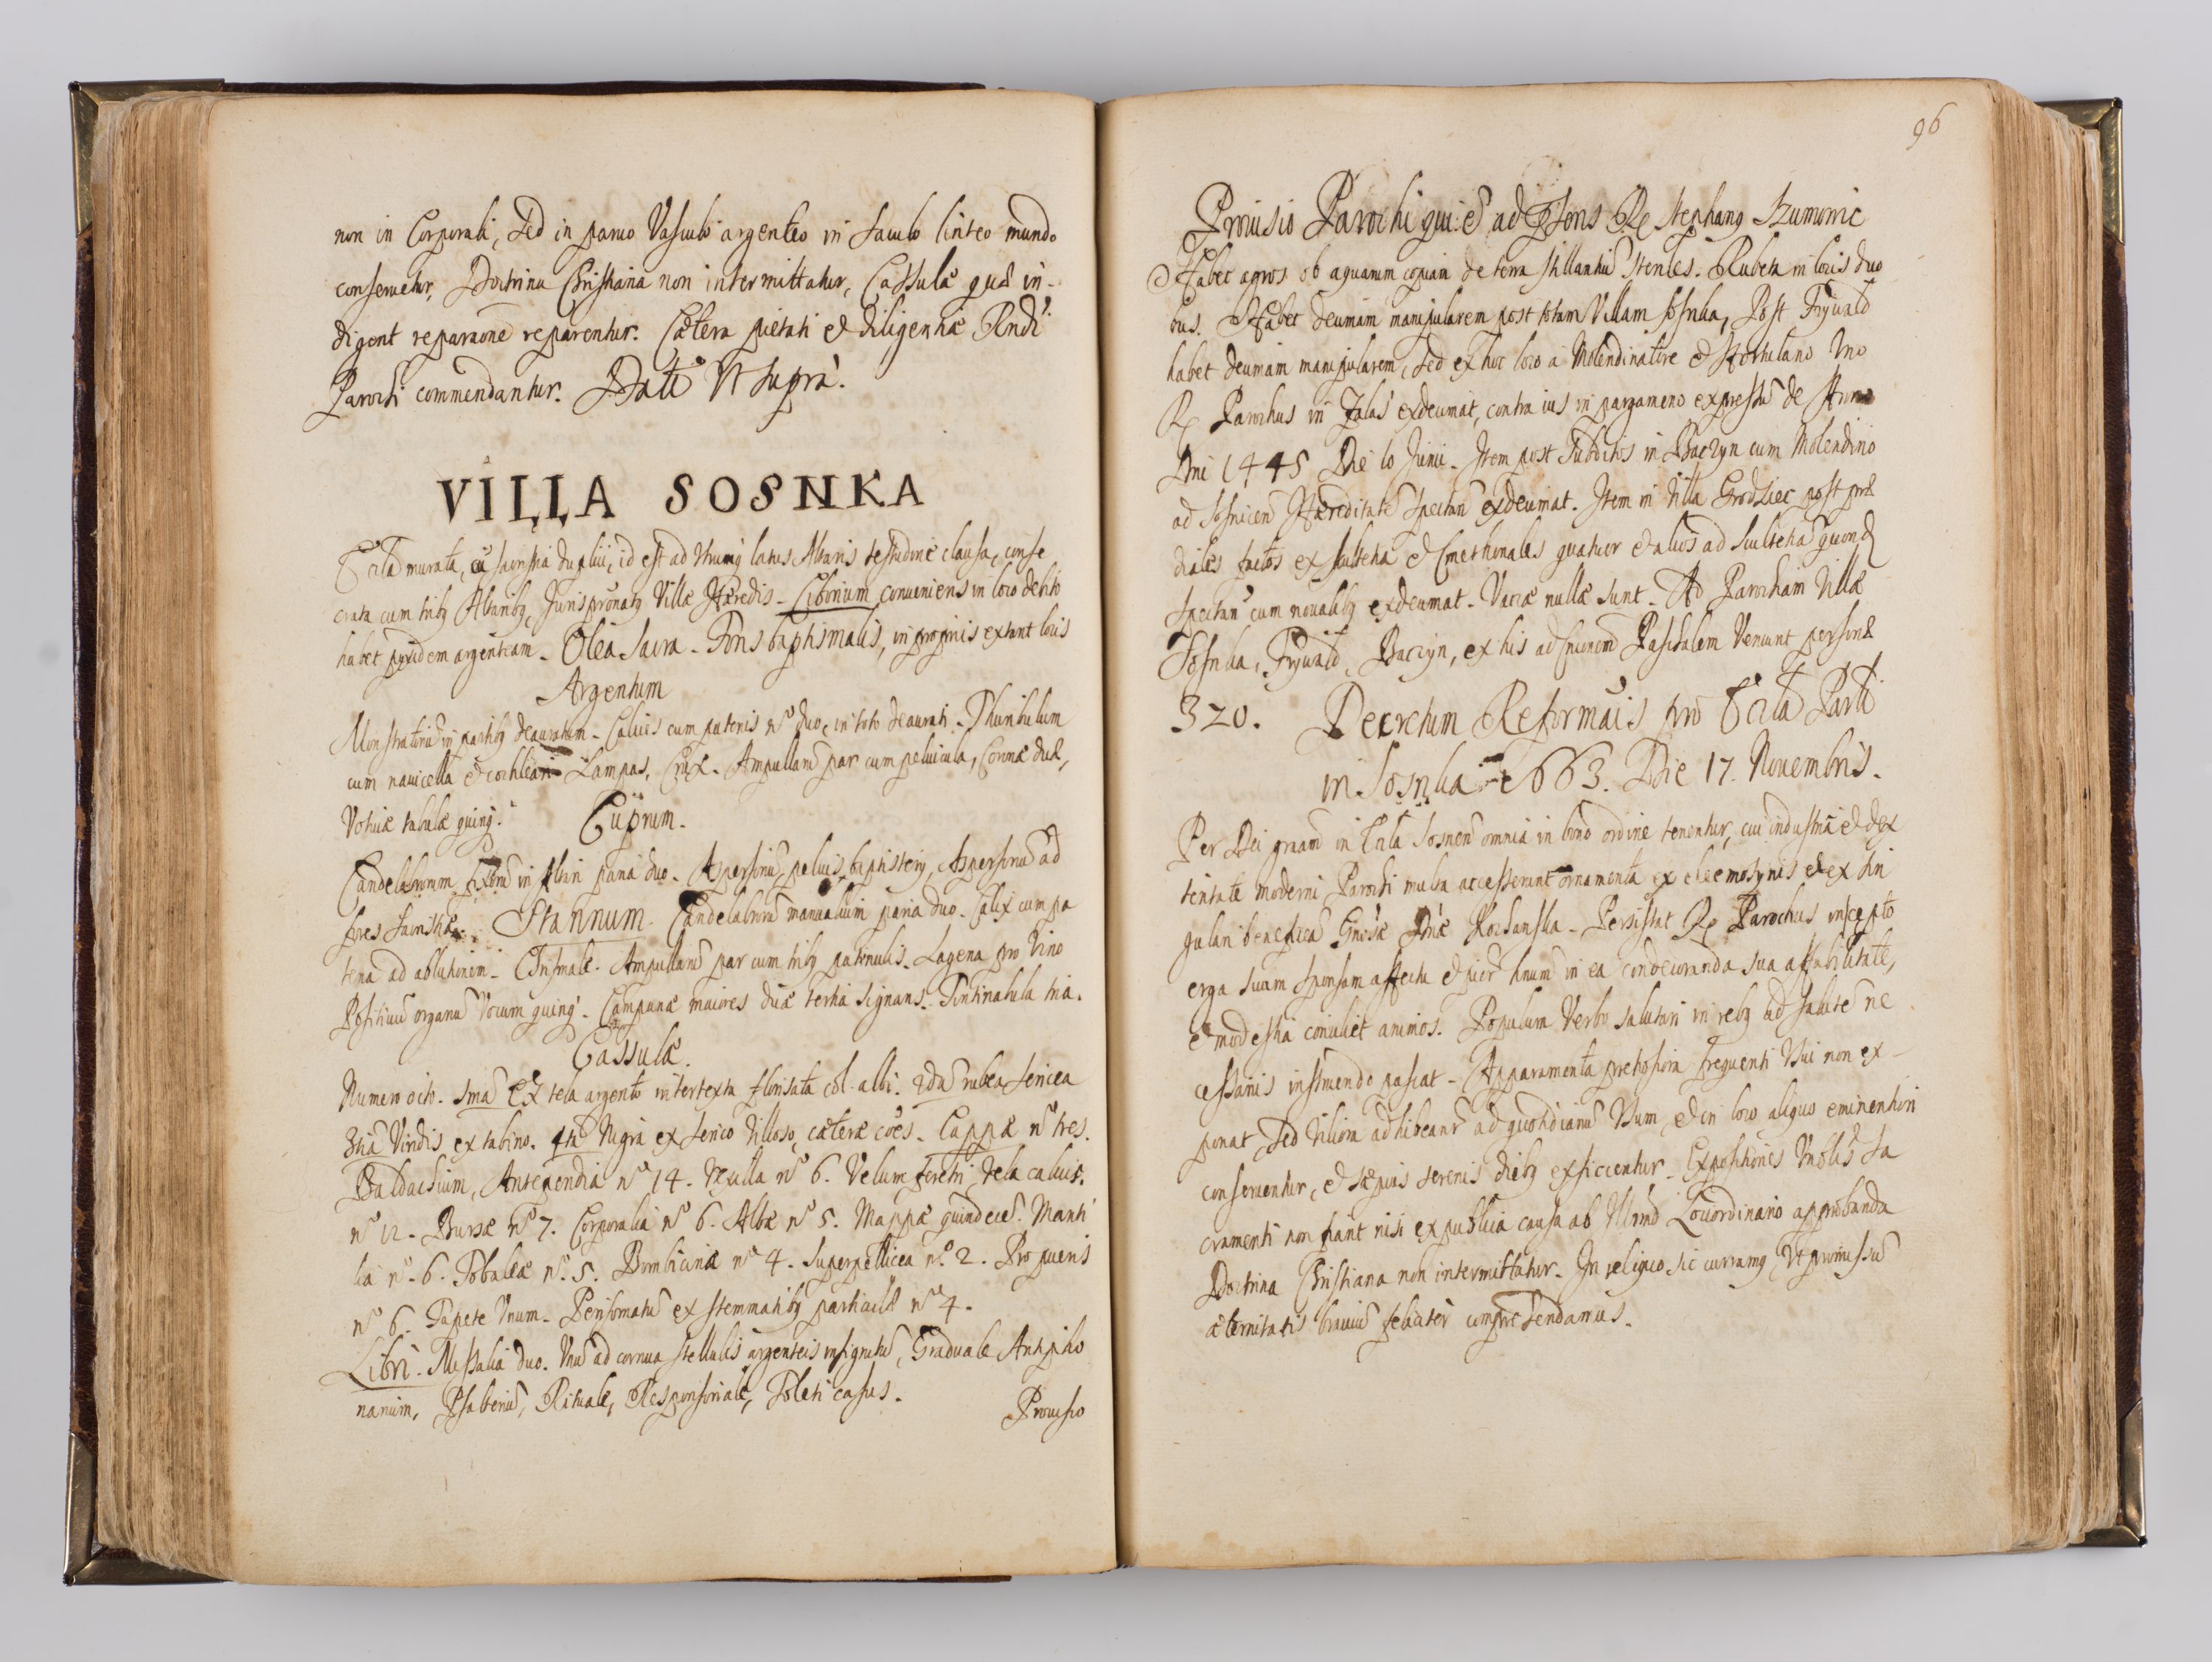 non in Corporali, sed in paruo Vasculo argenteo in saculo linteo mundo
conseruetur, Doctrina Christiana non intermittatur, Cassulæ quæ in-
digent reparaone reparentur. Cætera pietati et diligentiæ Rndi
Parochi commendantur. Datt Vt supra.
VILLA SOSNKA
Eccla murata, cu sacristia duplici, id est ad Vtrumq latus Altaris testudine clausa, conse
crata cum tribq Altaribq, Jurispronatq Villæ Hæredis - Ciborium conueniens in loco debito
habet pyxidem argenteam - Olea sacra - Fons baptismalis, in proprijs extant locis
Argentum
Monstratoriu in partibq deauratum - Calices cum patenis nº duo, in toto deaurati - Thuribulum
cum nauicella et cochleari Lampas, Crux. Ampullaru par cum peluicula, Coronæ duæ,
Votiuæ tabulæ quinq.
Cuprum.
Candelabrorum in Altari paria duo. Aspersoriu, peluis baptisterij, Aspersoriu ad
fores sacristiæ. Stannum. Candelabroru manualium paria duo. Calix cum pa
tena ad ablutionem - Chrismale. Ampullaru par cum tribq patinulis. Lagena pro Vino
Positiuu organu Vocum quinq. Campanæ maiores duæ tertia signans. Tintinabula tria.
Cassulæ.
Numero octo. 1ma Ex tela argento intertexta florisata col. albi. 2da rubea sericea
3tia Viridis ex tabino. 4ta Nigra ex serico Villoso, cæteræ coes. Cappæ nº tres.
Baldachium, Antependia nº 14. Vexilla nº 6. Velum feretri, Vela calicis.
nº 12. Bursæ nº 7. Corporalia nº 6. Albæ nº 5. Mappæ quindeci. Manti
lia nº 6. Tobaleæ nº 5. Bombicinæ nº 4. Superpellicea nº 2. Pro pueris
nº 6. Tapete Vnum. ex stemmatibq particulæ nº 4.
Libri. Missalia duo. Vnu ad cornua stellulis argenteis insignitu, Graduale Antipho
narium, Psalteriu, Rituale, Responsoriale, Toleti casus.
Prouisio
96
Prouisio Parochi qui: e ad Psens R Stephanq Szumowic
Habet agros ob aquarum copiam de terra stillantiu steriles. Rubeta in locis duo
bus. Habet decimam manipularem post totam Villam Sosnka, Post Frywald
habet decimam manipularem, sed ex hoc loco a Molendinatore et Hortulano Vno
R Parochus in Zalas exdecimat, contra ius in pargameno expressu de Anno
Dni 1445 Die 10 Junii. Item post Subditos in Baczyn cum Molendino
ad Sosnicen Hæreditate spectan exdecimat. Item in Villa Grodziec post præ
diales factos ex Scultetia et Cmethonales quatuor et alios ad Scultetia quond
spectan cum noualibq exdecimat. Varia nulla sunt. Ad Parochiam Villæ
Sosnka, Frywald, Baczyn, ex his ad Coionem Paschalem Veniunt personæ
320. Decretum Reformaois pro Eccla Parli
in Sosnka 1663. Die 17. Nouembris.
Per Dei graam in Eccla Sosnen omnia in bono ordine tenentur, cui industria et dex
teritate moderni Parochi multa accesserunt ornamenta ex eleemosynis et ex sin
gulari beneficia Gnosæ Dnæ Kochanska - Persistat R Parochus in cæpto
erga suam sponsam affectu et in ea condecoranda sua affabilitate,
et modestia conciliet animos. Populum Verbo salutari in rebq ad salute ne
cessarijs instruendo pascat - Apparamenta pretiosiora frequenti Vsui non ex-
ponat, sed Viliora adhibeantr ad quotidianu Vsum, et in loco aliquo eminentiori
conseruentur, et sæpius serenis diebq exsiccentur - Expositiones Vnblis Sa
cramenti non fiant nisi ex publica causa ab Illrmo Locordinario approbanda
Doctrina Christiana non intermittatur. In reliquo sic curramq, Vt promissu
æternitatis brauiu feliciter comprehendamus.